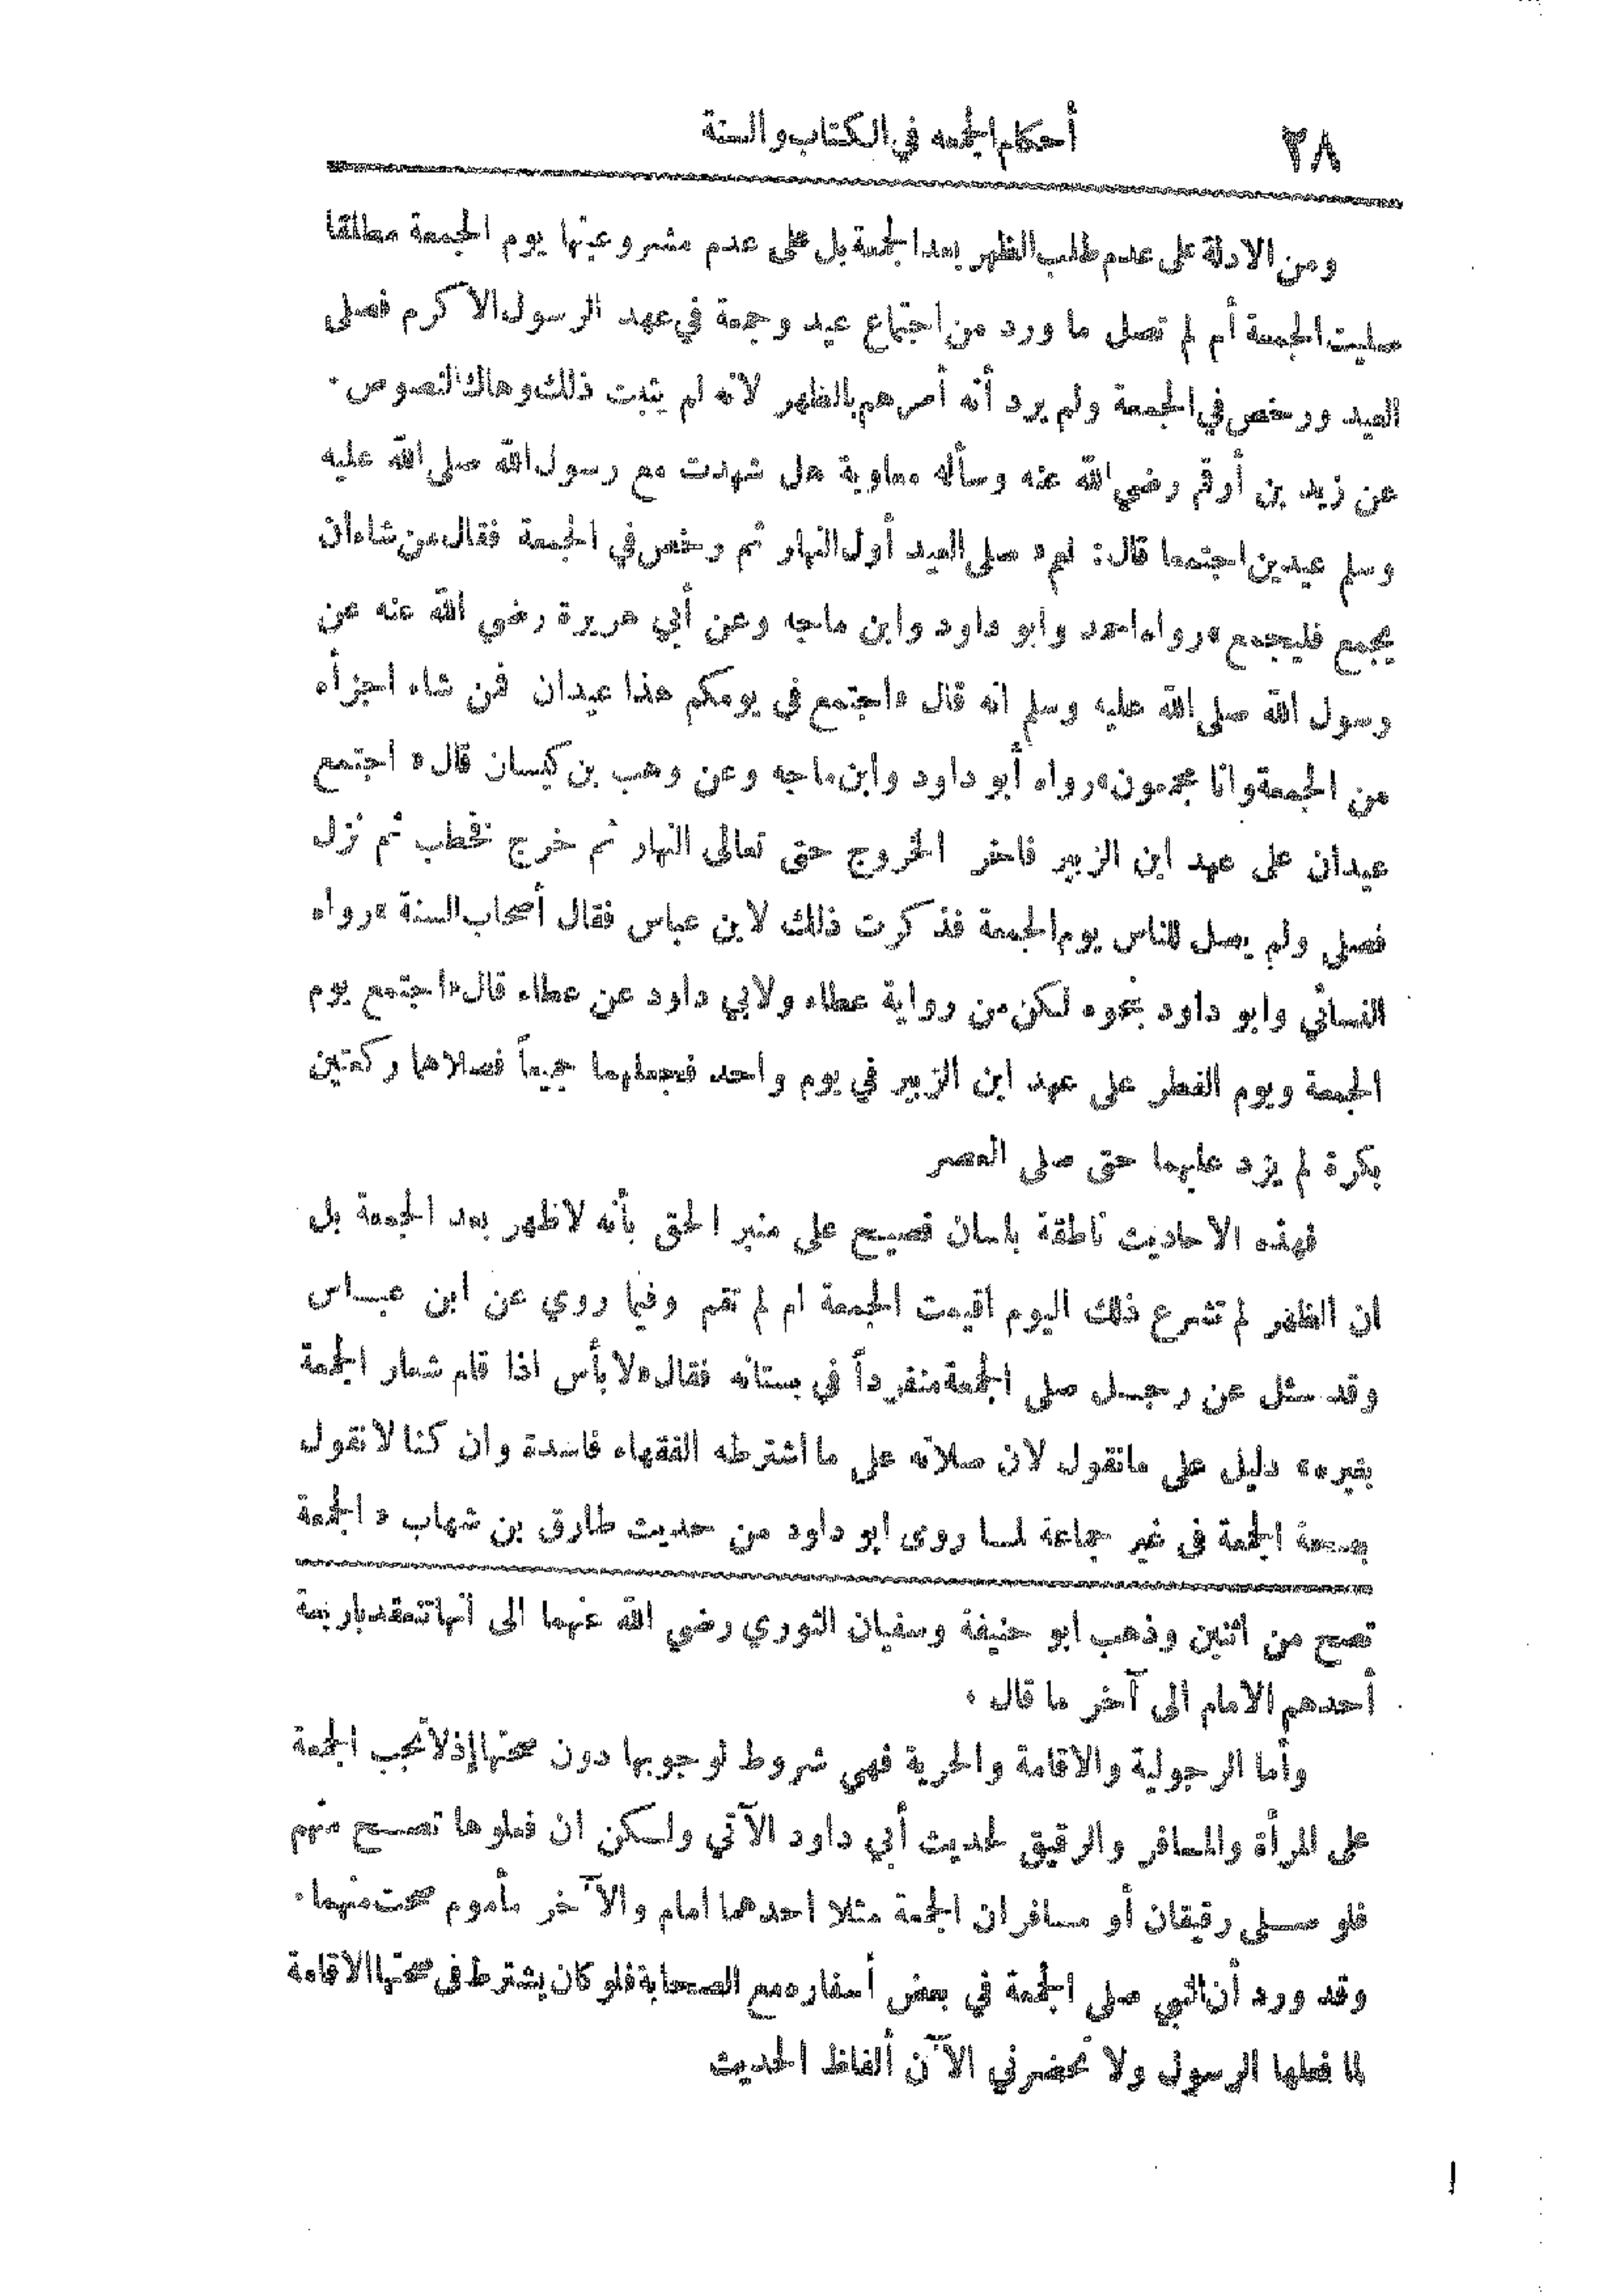 ٢٨
أحكام الجمعه في الكتاب والسنة
ومن الادلة على عدم طلب الظهر بعد الجمعة بل على عدم مشروعيتها يوم الجمعة مطلقا
صليت الجمعة أم لم تصل ما ورد من اجتماع عيد وجمعة في عهد الرسول الاكرم فصلى
العيد ورخص في الجمعة ولم يرد أنه أمرهم بالظهر لانه لم يثبت ذلك وهاك النصوص.
عن زيد بن أرقم رضي الله عنه وسأله معاوية هل شهدت مع رسول الله صلى الله عليه
وسلم عيدين اجتمعا قال: نعم صلى العيد أول النهار ثم رخص في الجمعة فقال من شاء ان
يجمع فليجمع» رواه احمد وابو داود وابن ماجه وعن أبي هريرة رضي الله عنه عن
رسول الله صلى الله عليه وسلم انه قال «اجتمع في يومكم هذا عيدان فمن شاء اجزأه
من الجمعة وانا مجمعون» رواه أبو داود وابن ماجه وعن وهب بن كيسان قال « اجتمع
عيدان على عهد ابن الزبير فاخر الخروج حتى تعالى النهار ثم خرج فخطب ثم نزل
فصلى ولم يصل للناس يوم الجمعة فذكرت ذلك لابن عباس فقال أصحاب السنة » رواه
النسائي وابو داود بنحوه لكن من رواية عطاء ولابي داود عن عطاء قال «اجتمع يوم
الجمعة ويوم الفطر على عهد ابن الزبير في يوم واحد فجعلهما جميعاً فصلاهما ركعتين
بكرة لم يزد عليهما حتى صلى العصر
فهذه الاحاديث ناطقة بلسان فصيح على منبر الحق بأنه لا ظهر بعد الجمعة بل
ان الظهر لم تشرع ذلك اليوم اقيمت الجمعة ام لم تقم وفيما روي عن ابن عباس
وقد سئل عن رجل صلى الجمعة منفرداً في بستانه فقال «لا بأس اذا قام شعار الجمعة
بغيره» دليل على ما نقول لان صلاته على ما اشترطه الفقهاء فاسدة وان كنا لا نقول
بصحة الجمعة في غير جماعة لما روى ابو داود من حديث طارق بن شهاب « الجمعة
تصح من اثنين وذهب ابو حنيفة وسفيان الثوري رضي الله عنهما الى انها تنعقد باربعة
أحدهم الامام الى آخر ما قال .
وأما الرجولية والاقامة والحرية فهي شروط لوجوبها دون صحتها إذ لا تجب الجمعة
على المرأة والمسافر والرقيق لحديث أبي داود الآتي ولكن ان فعلوها تصح منهم
فلو صلى رقيقان أو مسافران الجمعة مثلا احدهما امام والآخر مأموم صحت منهما.
وقد ورد أن النبي صلى الجمعة في بعض أسفاره مع الصحابة فلو كان يشترط في صحتها الاقامة
لما فعلها الرسول ولا تحضرني الآن ألفاظ الحديث